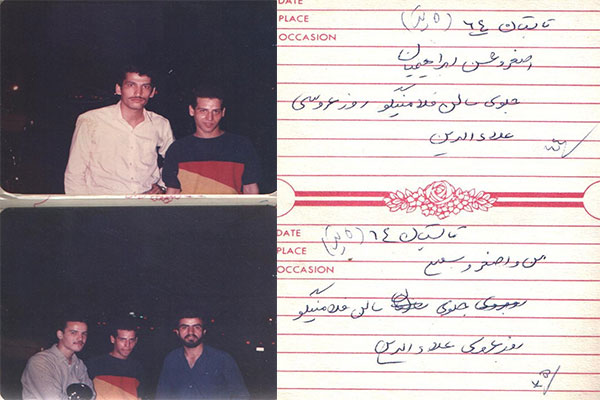 DATE
PLACE
OCCASION
تابستان ٦٤
اصغر و حسن ابراهیمیان
جلوی سالن فلامینگو روز عروسی
علاءالدین
DATE
PLACE
OCCASION
تابستان ٦٤
من و اصغر و سمیع
جلوی سالن فلامینگو
روز عروسی علاءالدین